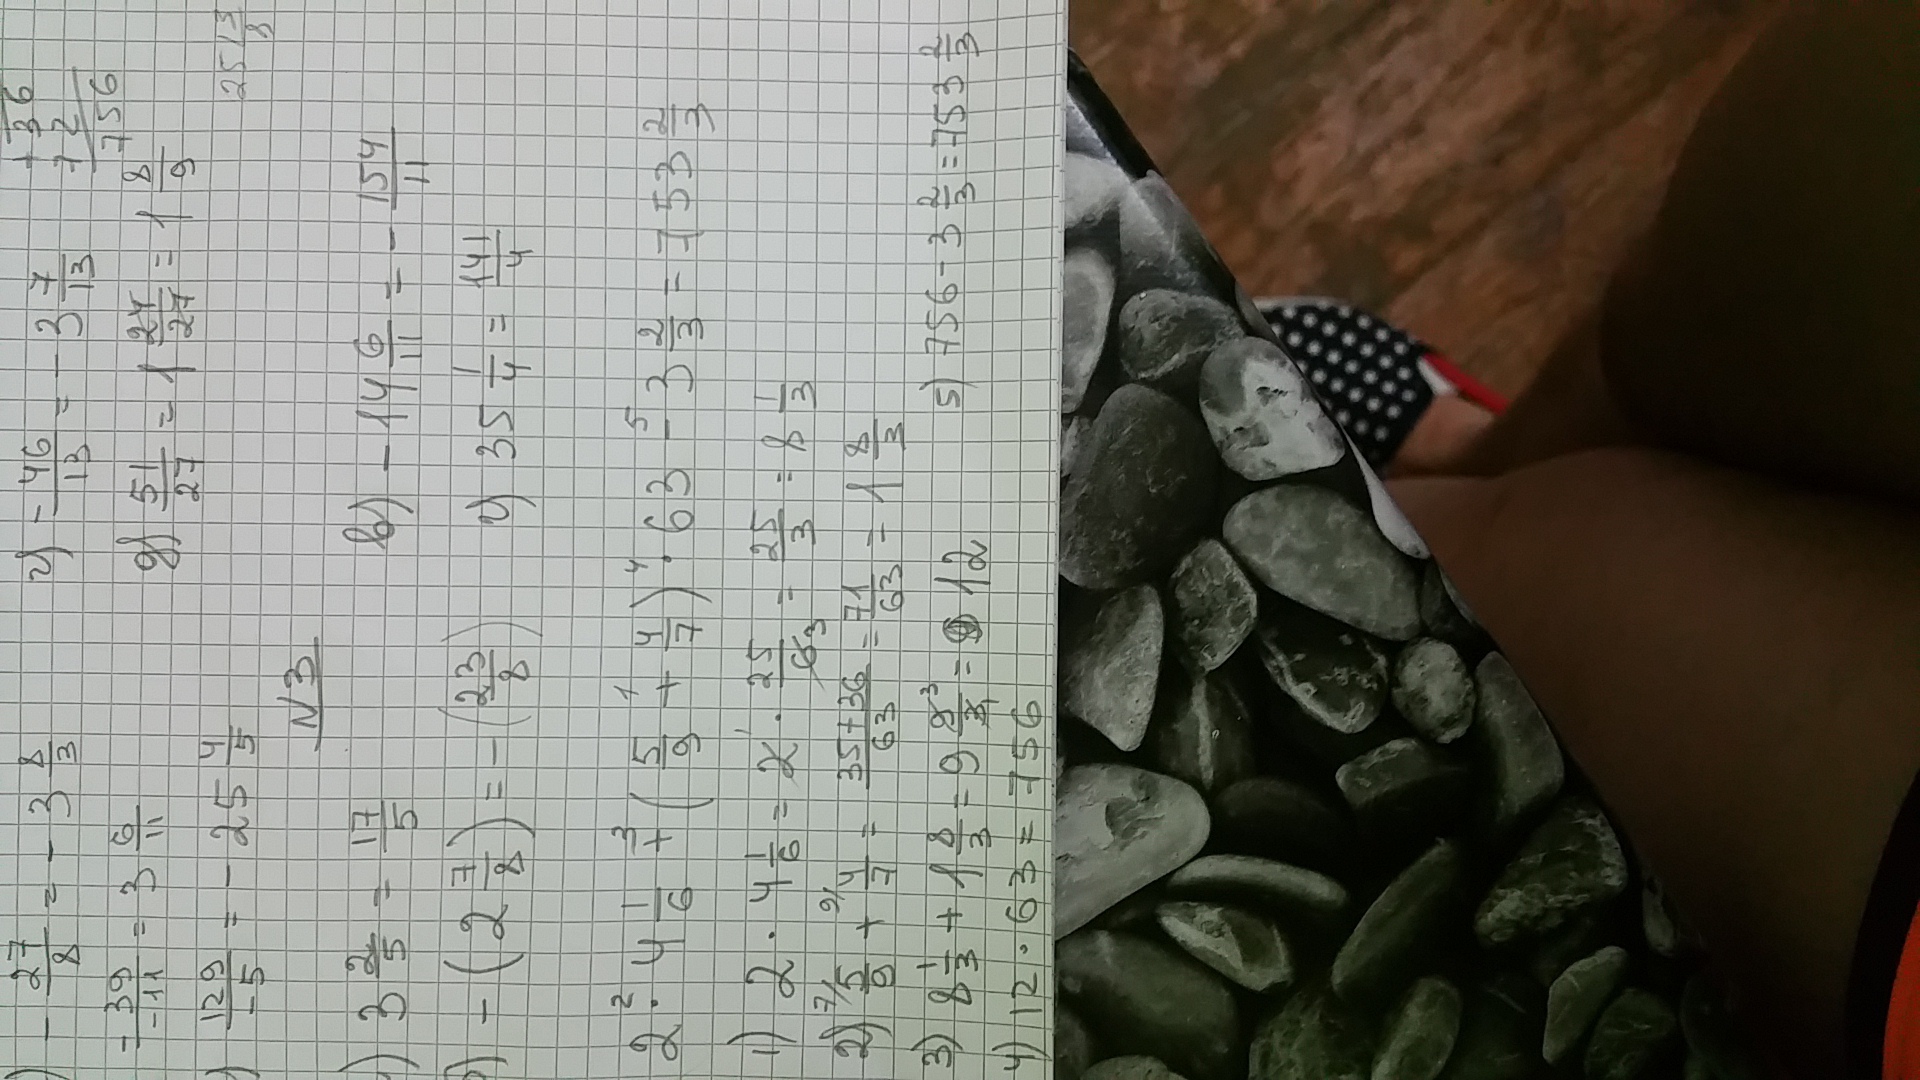 + 36
72
756
- 27/8 = - 3 8/3
г) - 46/13 = - 3 7/13
-39/-11 = 3 6/11
д) 51/27 = 1 24/27 = 1 8/9
129/-5 = - 25 4/5
25 13/8
N3
3 2/5 = 17/5
в) - 14 6/11 = - 154/11
- (2 7/8) = - (23/8)
г) 35 1/4 = 141/4
2 · 4 1/6 + (5/9 + 4/7) · 63 - 3 2/3 = 753 2/3
1) 2 · 4 1/6 = 2 · 25/63 = 25/3 = 8 1/3
2) 5/9 + 4/7 = 35+36/63 = 71/63 = 1 8/3
3) 8 1/3 + 1 8/3 = 9 9/3 = 12
4) 12 · 63 = 756
5) 756 - 3 2/3 = 753 2/3